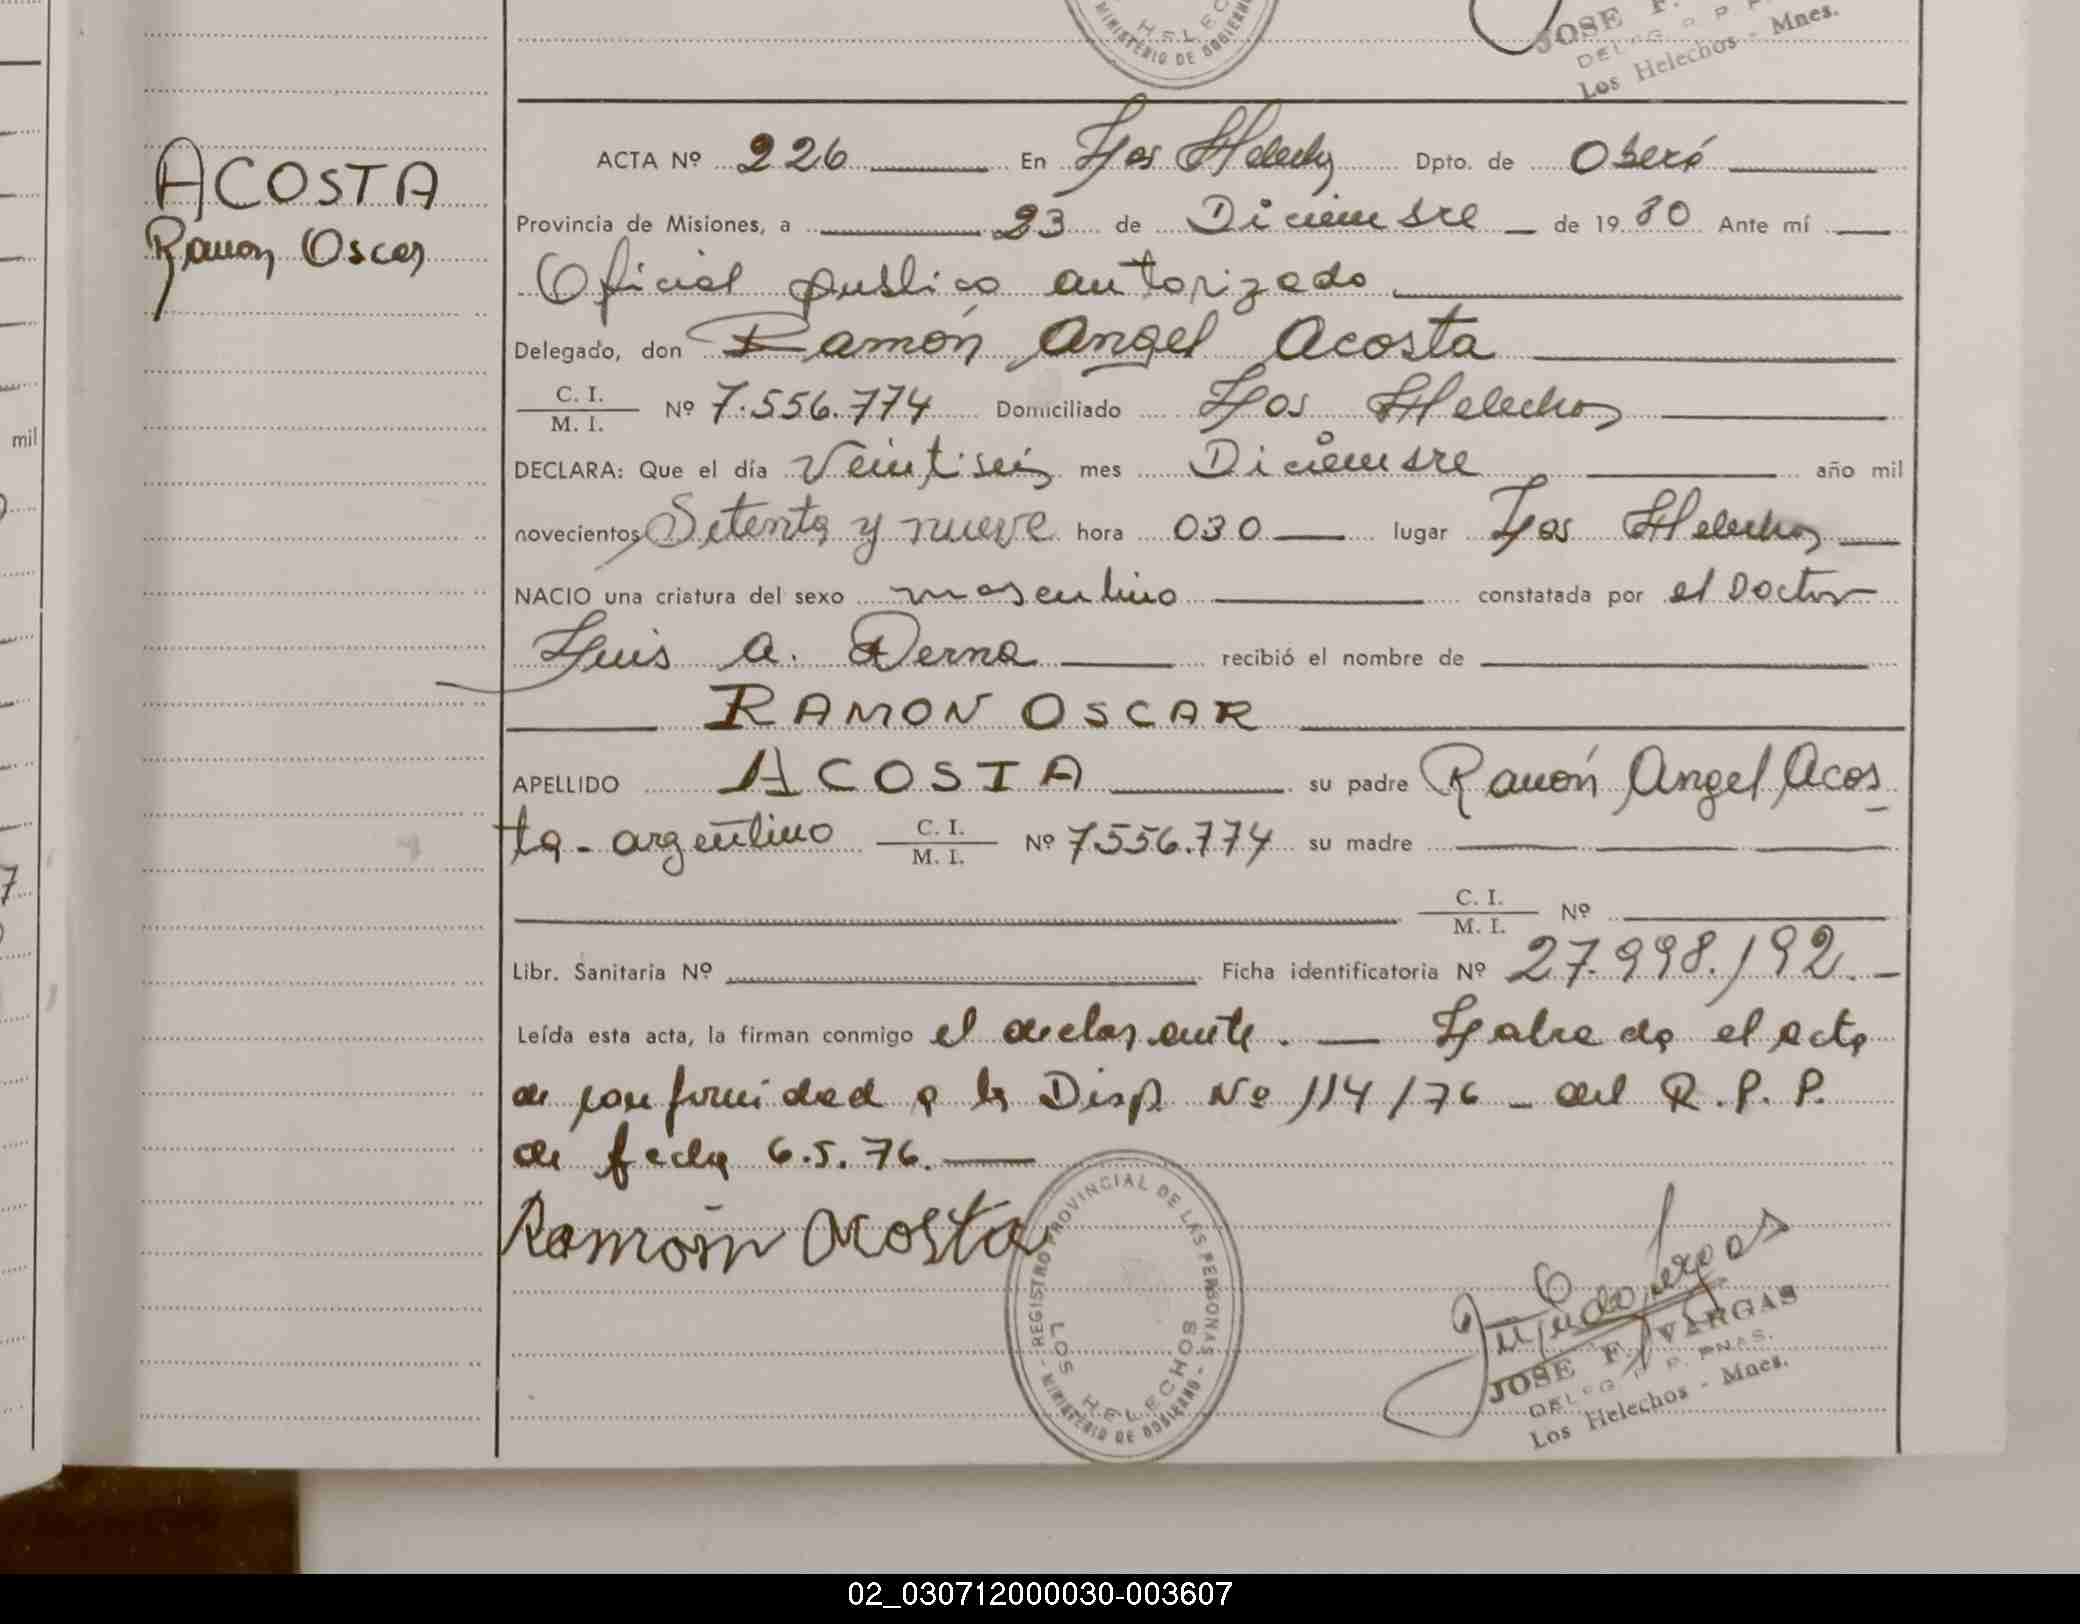 H E L E C
MINISTERIO DE GOBIERNO
JOSE F.
DELEG. R. P. P.
Los Helechos - Mnes.
ACOSTA
Ramon Oscar
ACTA Nº 226 En Los Helechos Dpto. de Oberá
Provincia de Misiones, a 23 de Diciembre de 1980 Ante mí
Oficial publico autorizado
Delegado, don Ramón Angel Acosta
C. I.
M. I. Nº 7.556.774 Domiciliado Los Helechos
mil
DECLARA: Que el día Veintiseis mes Diciembre año mil
novecientos Setenta y nueve hora 030 lugar Los Helechos
NACIO una criatura del sexo masculino constatada por el Doctor
Luis A. Derna recibió el nombre de
RAMON OSCAR
APELLIDO ACOSTA su padre Ramón Angel Acos
ta - argentino C. I.
M. I. Nº 7.556.774 su madre
7
C. I.
M. I. Nº
Libr. Sanitaria Nº Ficha identificatoria Nº 27.998.192.
Leída esta acta, la firman conmigo el declarante. Labrada el acta
de conformidad a la Disp. Nº 114/76 - del R. P. P.
de fecha 6.5.76.
Ramón Acosta
REGISTRO PROVINCIAL DE LAS PERSONAS
LOS HELECHOS
MINISTERIO DE GOBIERNO
JOSE F. VARGAS
DELEG. R. P. PNAS.
Los Helechos - Mnes.
02_030712000030-003607